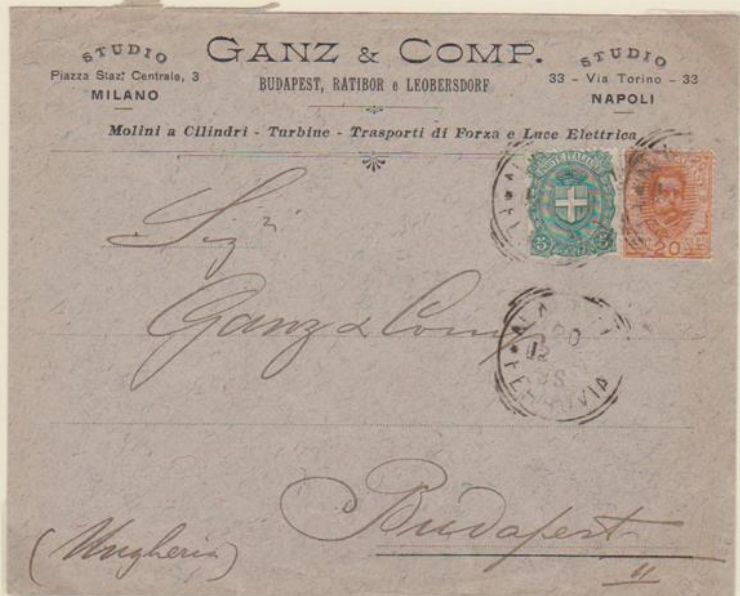 STUDIO
Piazza Staz. Centrale, 3
MILANO
GANZ & COMP.
BUDAPEST, RATIBOR e LEOBERSDORF
STUDIO
33 - Via Torino - 33
NAPOLI
Molini a Cilindri - Turbine - Trasporti di Forza e Luce Elettrica
POSTE ITALIANE
5 5
20
Sigri
Ganz & Comp
20
12
FERROVIA
Budapest
(Ungheria)